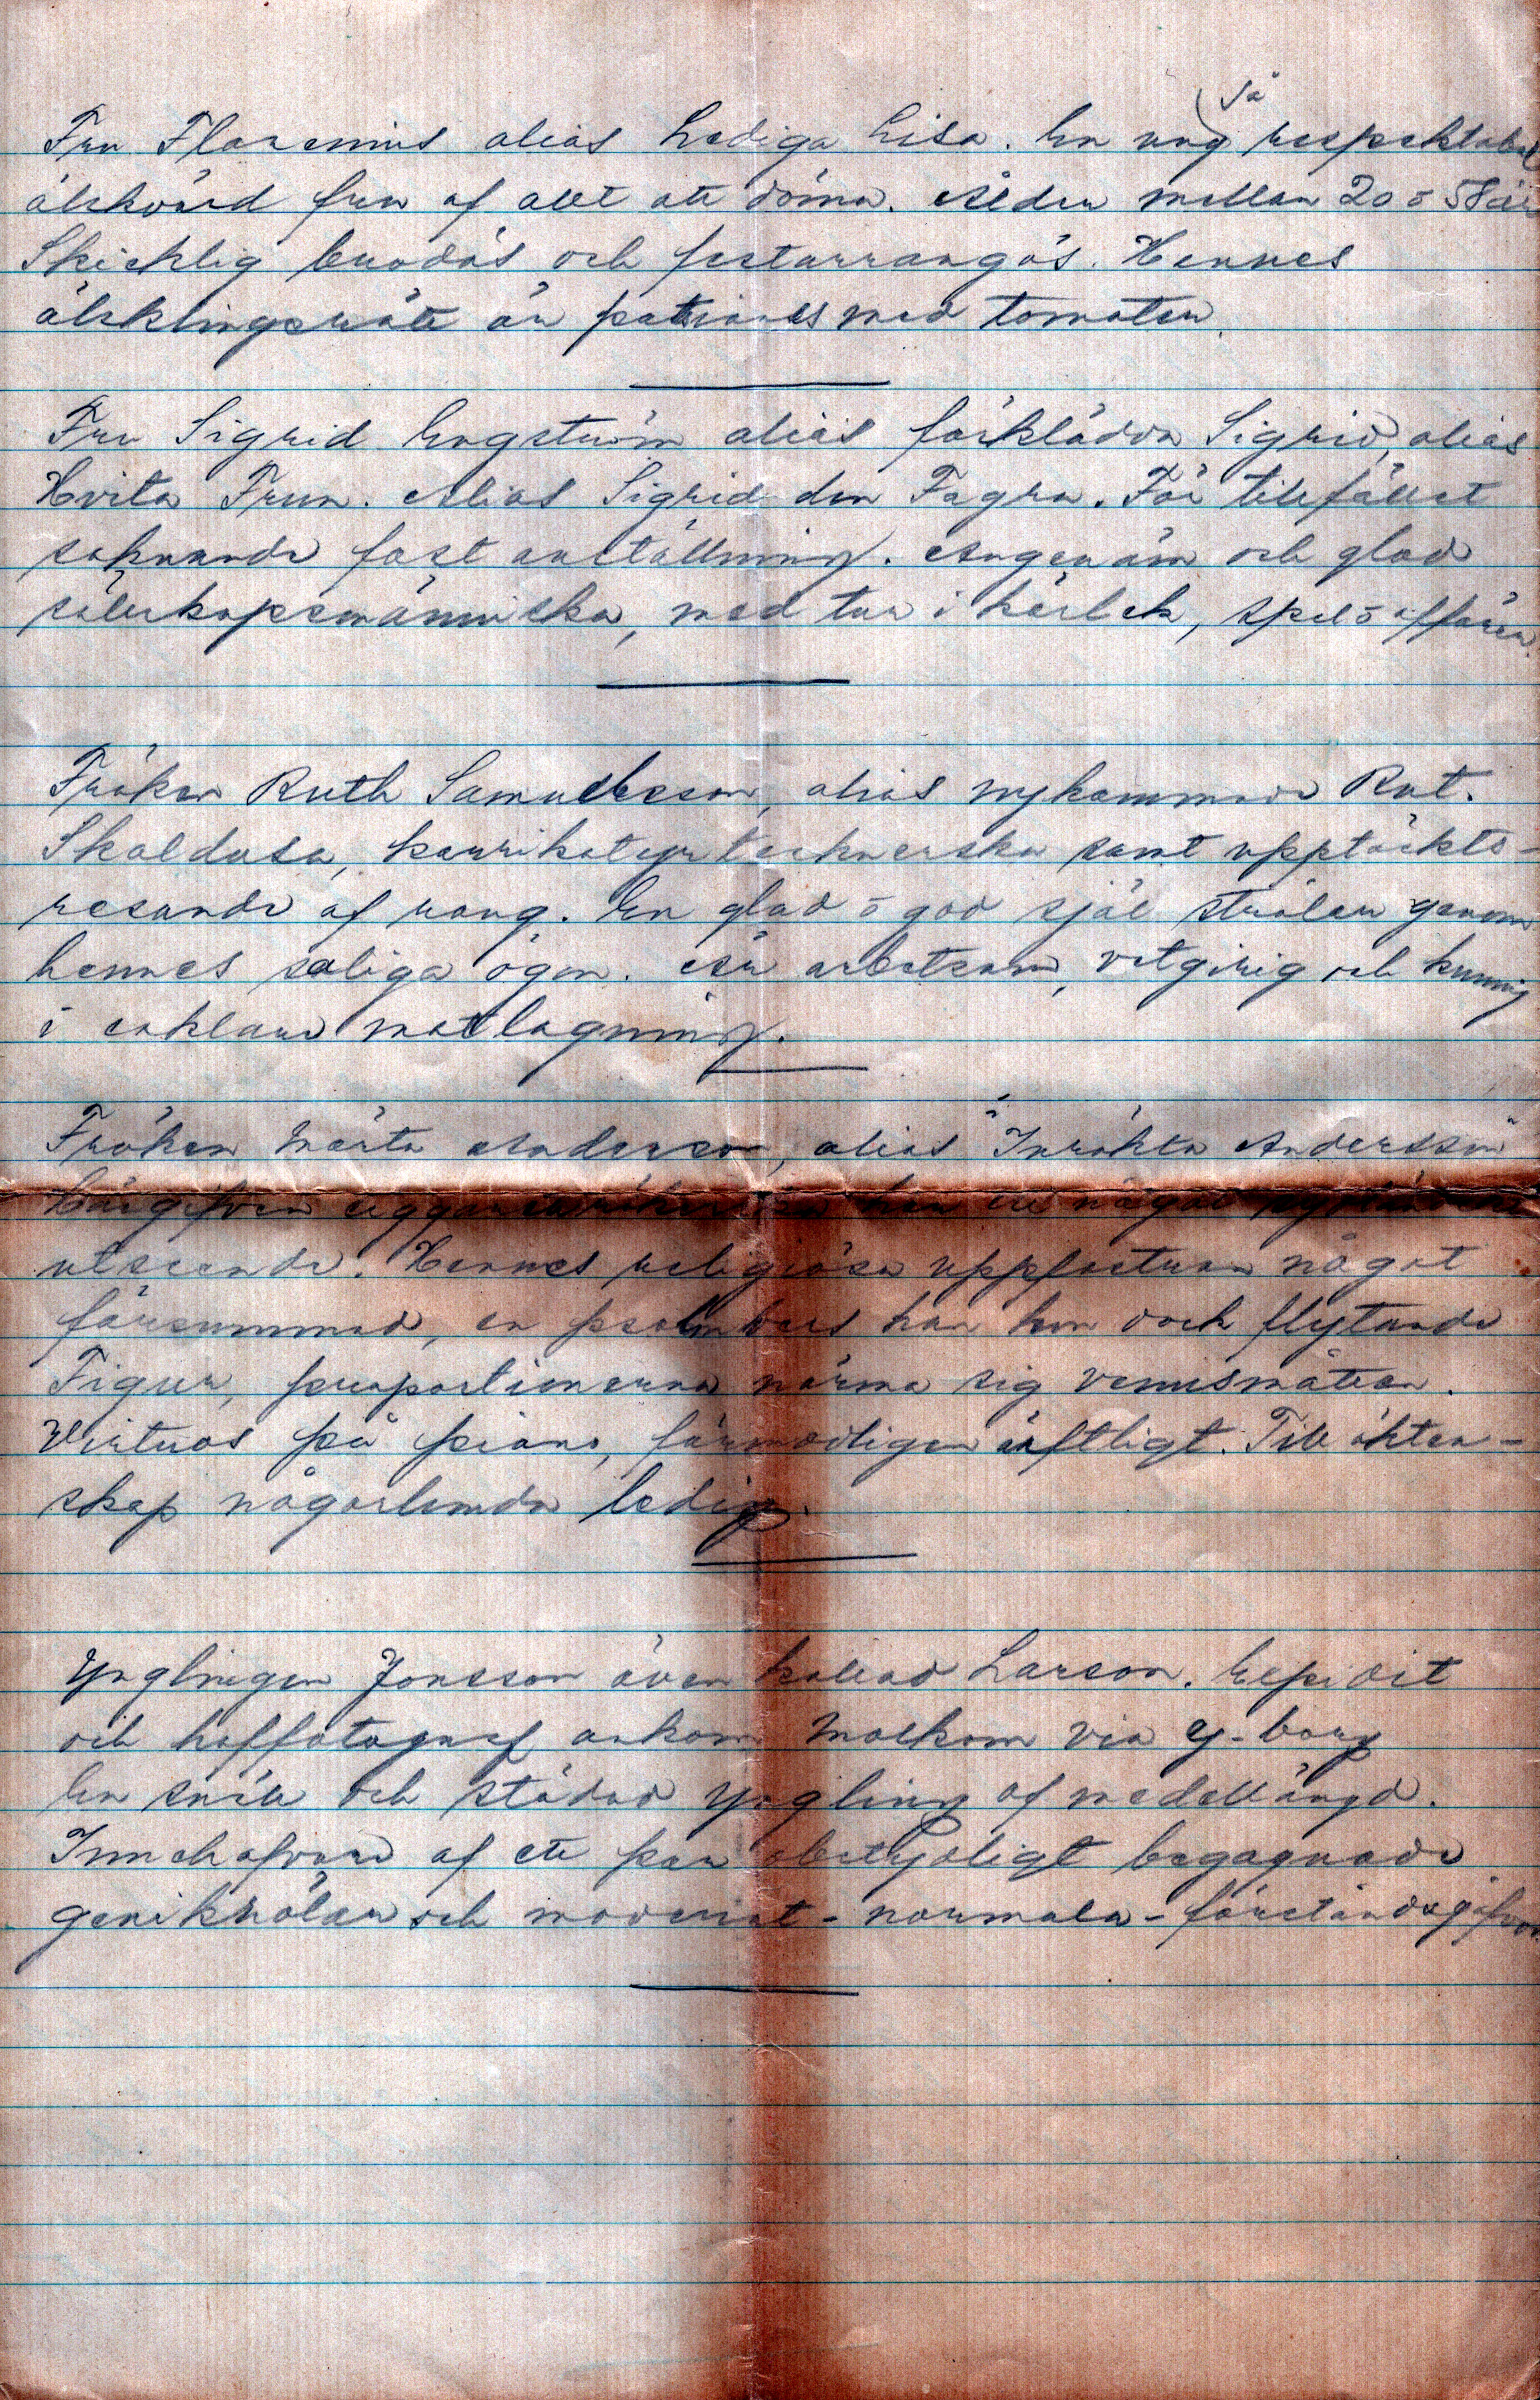 Fru Florenius alias Lediga Lisa. En ung så respektabel
älskvärd fru af allt att döma. Ålder mellan 20 o 58 år
Skicklig brodös och festarrangös. Hennes
älsklingsrätt är patiens med tomater.
Fru Sigrid Engström alias förklädda Sigrid, alias
Hvita Frun. Alias Sigrid den Fagra. För tillfället
saknande fast anställning. Angenäm och glad
sällskapsmänniska, med tur i kärlek, spel o affärer.
Fröken Ruth Samuelsson, alias nykommande Rut.
Skaldasa, karrikatyrtecknerska samt upptäckts-
resande af rang. En glad o god själ strålar genom
hennes saliga ögon. Är arbetsam, vetgirig och kunnig
i enklare matlagning.
Fröken Märta Anderson, alias "Inrökta Andersson"
utseende. Hennes religiösa uppfostran något
försummad, en psalmvers kan hon dock flytande
Figur, proportionerna närma sig venusmåtten.
Virtuos på piano, förmodligen ärftligt. Till äkten-
skap någorlunda ledig.
Ynglingen Jonsson även kallad Larson.
och hoffotograf ankom Molkom via G-borg
En snäll och städad yngling af medellängd.
Innehafvare af ett par obetydligt begagnade
geniknölar och moderat-normala-förståndsgåfvor.